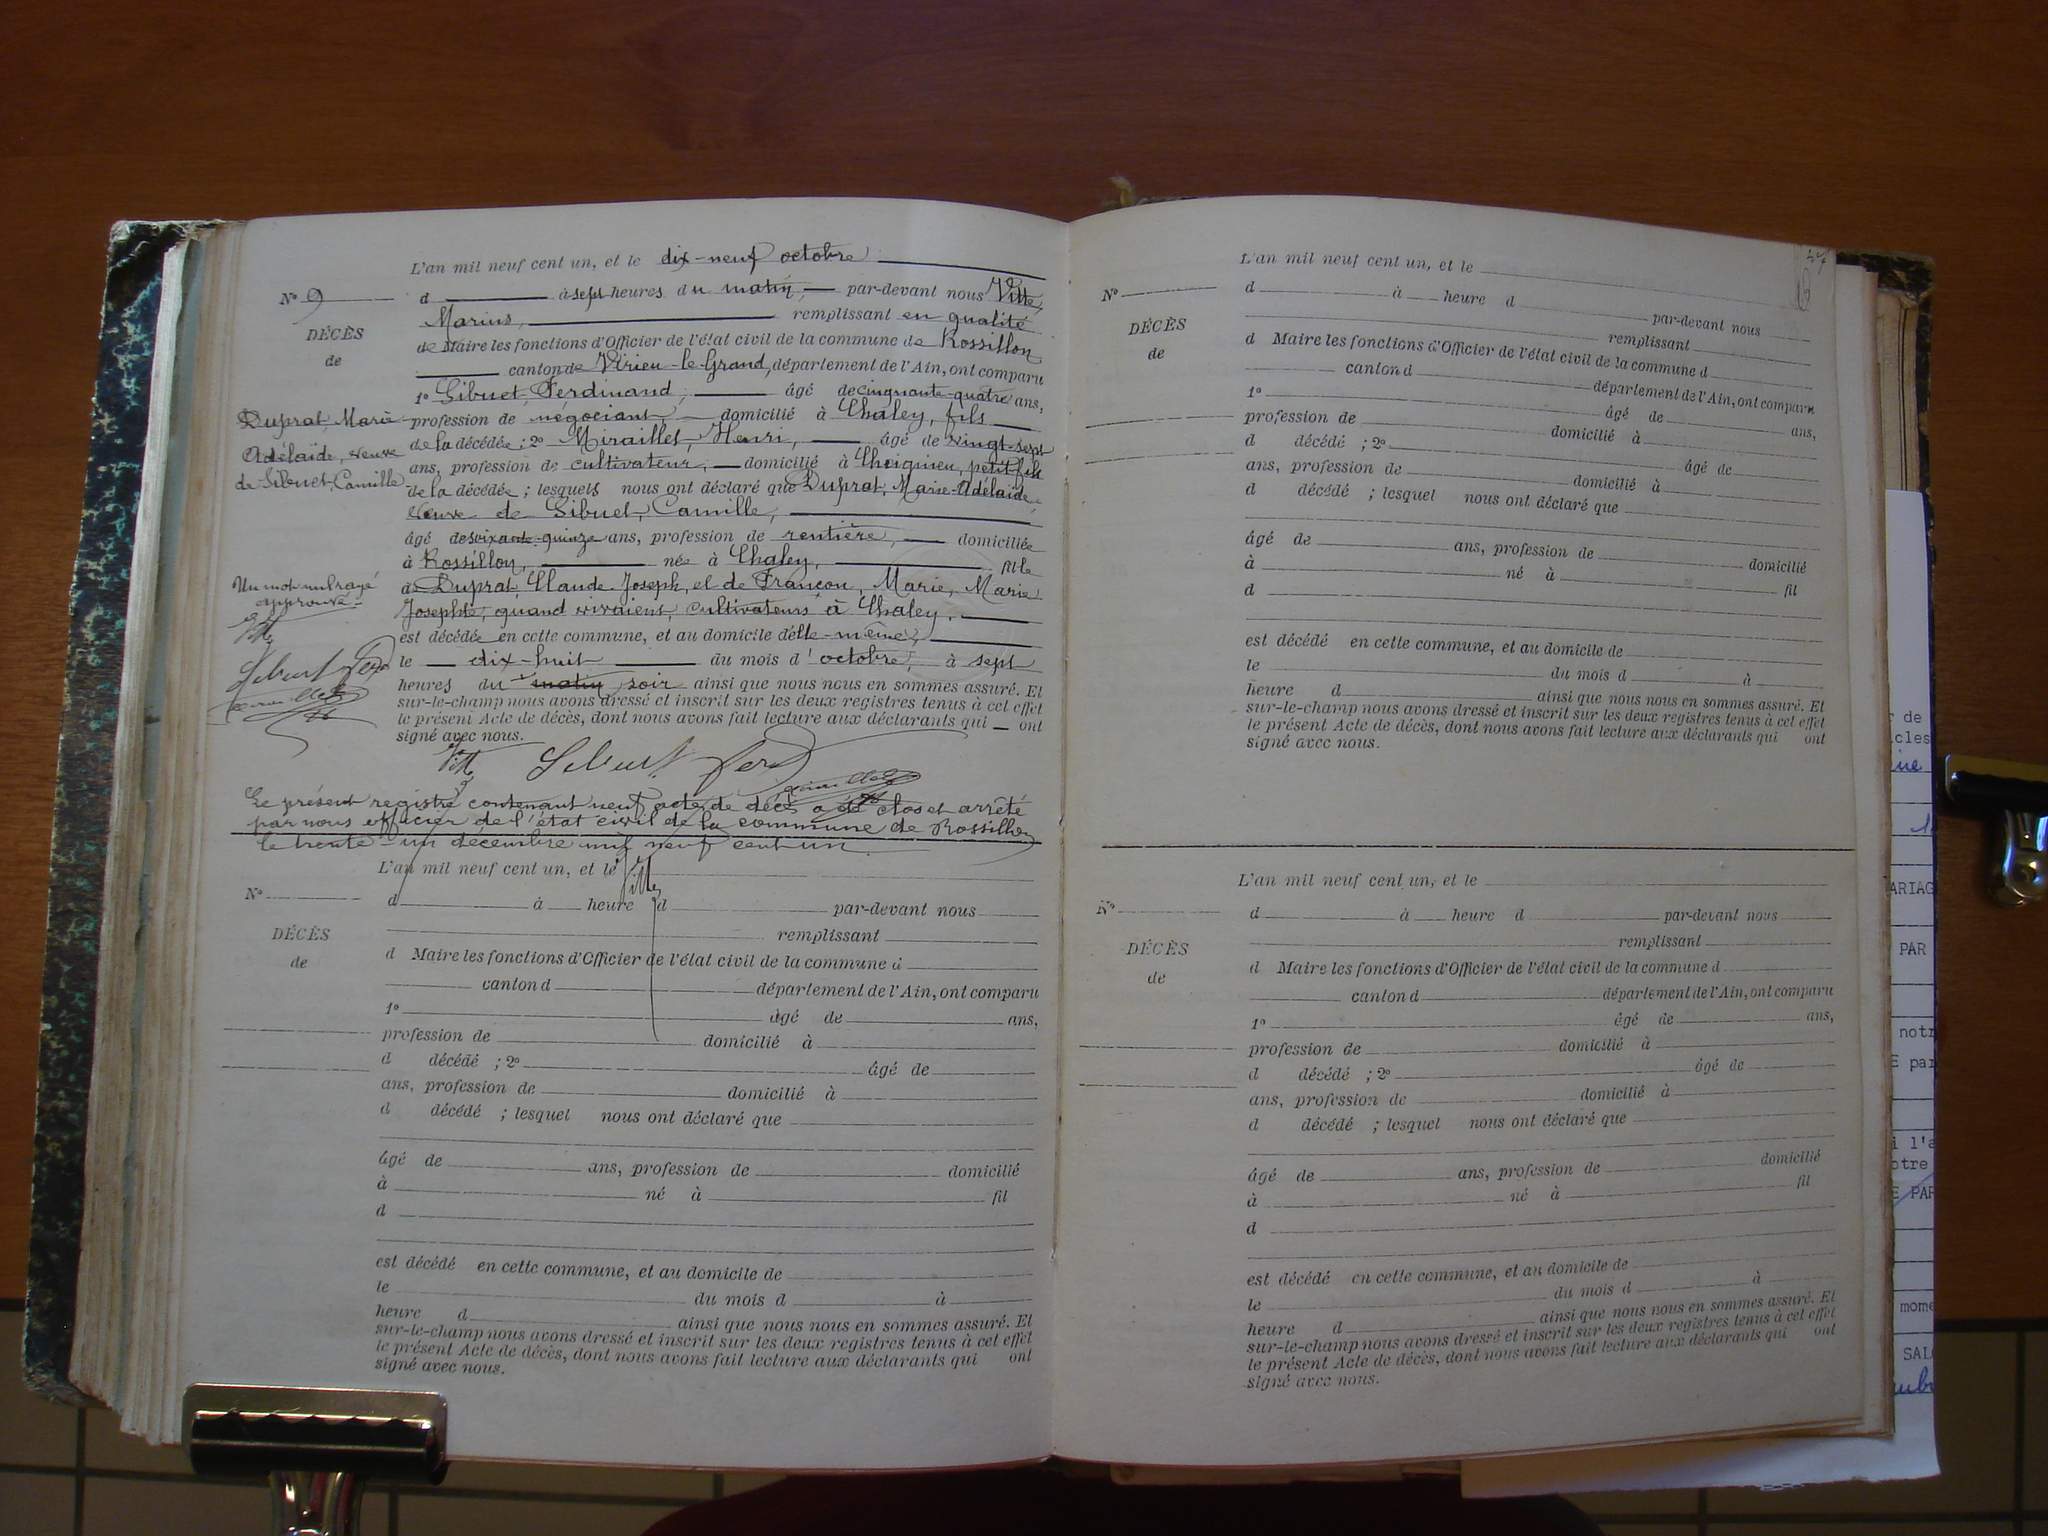 L'an mil neuf cent un, et le dix-neuf octobre
No 9
d à sept heures du matin, par-devant nous Vitte
Marius, remplissant en qualité
DÉCÈS
de Maire les fonctions d'Officier de l'état civil de la commune de Rossillon
de
canton de Virieu-le-Grand, département de l'Ain, ont comparu
1o Sibuet, Ferdinand, âgé de cinquante-quatre ans,
Duprat, Marie
profession de négociant domicilié à Chaley, fils
Adélaïde, veuve
de la décédée; 2o Miraillet, Henri, âgé de vingt-sept
de Sibuet, Camille
ans, profession de cultivateur, domicilié à petit-fils
de la décédée; lesquels nous ont déclaré que Duprat, Marie-Adélaïde,
veuve de Sibuet, Camille,
âgé de soixante-quinze ans, profession de rentière, domiciliée
à Rossillon, née à Chaley, fille
Un mot nul rayé
de Duprat, Claude-Joseph, et de Françon, Marie, Marie
approuvé
Josephte, quand vivaient, cultivateurs à Chaley.
Vitte
est décédée en cette commune, et au domicile d'elle-même,
Sibuet Ferd
le dix-huit du mois d'octobre, à sept
heures du matin soir ainsi que nous nous en sommes assuré. Et
sur-le-champ nous avons dressé et inscrit sur les deux registres tenus à cet effet
le présent Acte de décès, dont nous avons fait lecture aux déclarants qui ont
signé avec nous.
Vitte Sibuet Ferd
Le présent registre contenant neuf acte de décès a été clos et arrêté
par nous officier de l'état civil de la commune de Rossillon
le trente-un décembre mil neuf cent un.
Vitte
L'an mil neuf cent un, et le
No
d à heure d par-devant nous
remplissant
DÉCÈS
d Maire les fonctions d'Officier de l'état civil de la commune d
de
canton d département de l'Ain, ont comparu
1o âgé de ans,
profession de domicilié à
d décédé ; 2o âgé de
ans, profession de domicilié à
d décédé ; lesquel nous ont déclaré que
âgé de ans, profession de domicilié
à né à fil
d
est décédé en cette commune, et au domicile de
le du mois d à
heure d ainsi que nous nous en sommes assuré. Et
sur-le-champ nous avons dressé et inscrit sur les deux registres tenus à cet effet
le présent Acte de décès, dont nous avons fait lecture aux déclarants qui ont
signé avec nous.
L'an mil neuf cent un, et le
No
d à heure d par-devant nous
remplissant
DÉCÈS
d Maire les fonctions d'Officier de l'état civil de la commune d
de
canton d département de l'Ain, ont comparu
1o âgé de ans,
profession de domicilié à
d décédé ; 2o âgé de
ans, profession de domicilié à
d décédé ; lesquel nous ont déclaré que
âgé de ans, profession de domicilié
à né à fil
d
est décédé en cette commune, et au domicile de
le du mois d à
heure d ainsi que nous nous en sommes assuré. Et
sur-le-champ nous avons dressé et inscrit sur les deux registres tenus à cet effet
le présent Acte de décès, dont nous avons fait lecture aux déclarants qui ont
signé avec nous.
L'an mil neuf cent un, et le
No
d à heure d par-devant nous
remplissant
DÉCÈS
d Maire les fonctions d'Officier de l'état civil de la commune d
de
canton d département de l'Ain, ont comparu
1o âgé de ans,
profession de domicilié à
d décédé ; 2o âgé de
ans, profession de domicilié à
d décédé ; lesquel nous ont déclaré que
âgé de ans, profession de domicilié
à né à fil
d
est décédé en cette commune, et au domicile de
le du mois d à
heure d ainsi que nous nous en sommes assuré. Et
sur-le-champ nous avons dressé et inscrit sur les deux registres tenus à cet effet
le présent Acte de décès, dont nous avons fait lecture aux déclarants qui ont
signé avec nous.
r de
cles
ARIAG
PAR
notr
E par
i l'a
otre
E PAR
mome
SAL